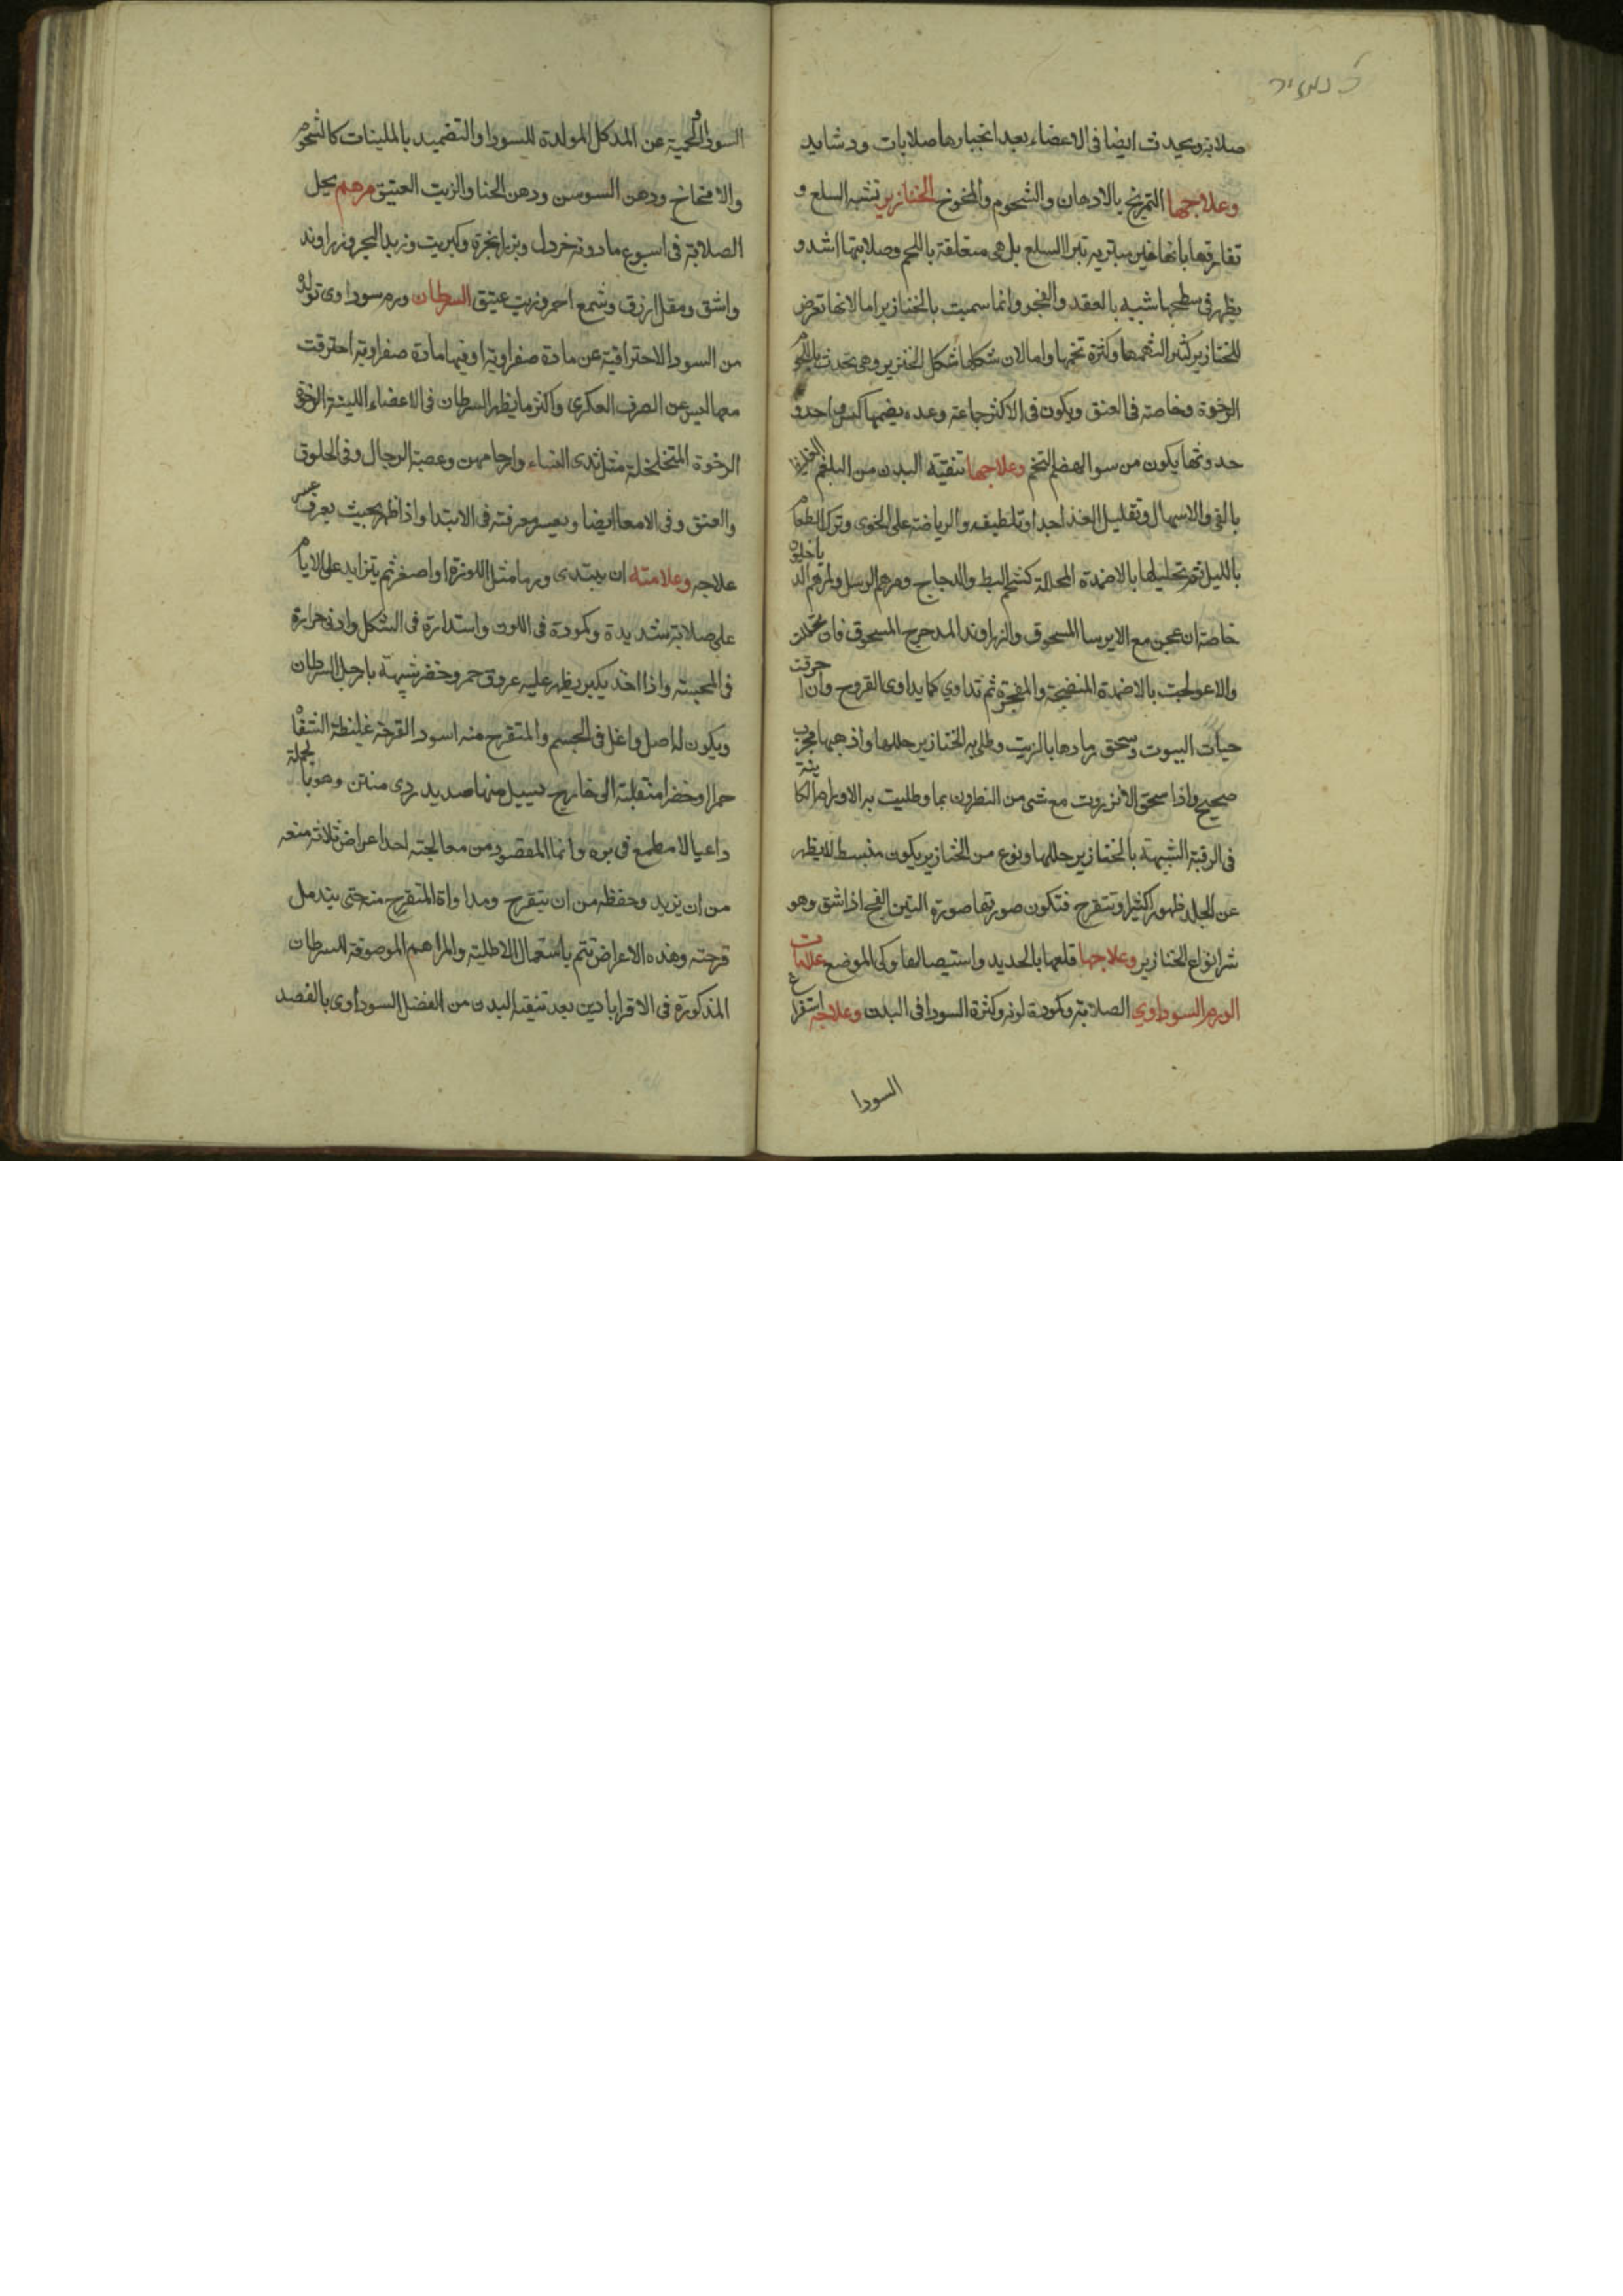 صلابة ويحدث ايضا فى الاعضاء بعد انجبارها صلابات ودشابد
وعلاجها التمريخ بالادهان والشحوم والمخوخ الخنازير تشبه السلع و
تفارقها بانها غير متبرية تبرا السلع بل هى متعلقة باللحم وصلابتها اشد و
يظهر فى سطحها شبيه بالعقد والعجر وانما سميت بالخنازير اما لانها تعرض
للخنازير كثيرا لنهمها وكثرة تخمها واما لان شكلها شكل الخنزير وهى تحدث باللحوم
الرخوة وخاصة فى العنق ويكون فى الاكثر جماعة وعدة يضمها كيس واحد و
حدوثها يكون من سوء الهضم التخم وعلاجها تنقية البدن من البلغم الغليظ
بالقى والاسهال وتقليل الغذا جدا وتلطيفه والرياضة على الخوى وترك الطعام
بالليل ثم تحليلها بالاضمدة المحللة كشحم البط والدجاج ومرهم الرسل ومرهم الدياخيلون
خاصة ان عجن مع الايرسا المسحوق والزراوند المدحرج المسحوق فان تحللت
والا عولجت بالاضمدة المنضجة والمفجرة ثم تداوي كما يداوى القروح وان احرقت
حيات البيوت وسحق رمادها بالزيت وطلى به الخنازير حللها واذهبها مجرب
صحيح واذا سحق الانزروت مع شى من النطرون بما وطليت به الاورام الكاينة
فى الرقبة الشبيهة بالخنازير حللها ونوع من الخنازير يكون منبسط لا يظهر
عن الجلد ظهورا كثيرا وتتقرح فتكون صورتها صورة التين الفج اذا شق وهو
شر انواع الخنازير وعلاجها قلعها بالحديد واستيصالها وكى الموضع علامات
الورم السوداوي الصلابة وكمودة لونه وكثرة السودا فى البدن وعلاجه استفراغ
السودا
السودا والحمية عن الماكل المولدة للسودا والتضميد بالملينات كالشحوم
والامخاخ ودهن السوسن ودهن الحنا والزيت العتيق مرهم يحل
الصلابة فى اسبوع ما دونه خردل وبزر انجرة وكبريت وزبد البحر وزراوند
واشق ومقل ازرق وشمع احمر وزيت عتيق السرطان ورم سوداوى تولده
من السودا الاحتراقية عن مادة صفراوية او فيها مادة صفراوية احترقت
معها ليس عن الصرف العكرى واكثر ما يظهر السرطان فى الاعضاء اللينة الرخوة
الرخوة المتخلخلة مثل ثدى النساء وارحامهن وعصبة الرجال وفى الحلوق
والعنق وفى الامعا ايضا ويعسر معرفته فى الابتدا واذا ظهر بحيث يعرف عسر
علاجه وعلامته ان يبتدى ورما مثل اللوزة او اصغر ثم يتزايد على الايام
على صلابة شديدة وكمودة فى اللون واستدارة فى الشكل وادنى حرارة
فى المجسة واذا اخذ يكبر يظهر عليه عروق حمر وخضر شبيهة بارجل السرطان
ويكون له اصل واغل فى الجسم والمتقرح منه اسود القرحة غليظة الشفاه
حمرا وخضرا منقلبة الى خارج يسيل منها صديد ردى منتن وهو بالجملة
داعيا لا مطمع فى بره وانما المقصود من معالجته احد اعراض ثلاثة منعه
من ان يزيد وحفظه من ان يتقرح ومداواة المتقرح منه حتى يندمل
قرحته وهذه الاعراض تتم باستعمال الاطلية والمراهم الموصوفة للسرطان
المذكورة فى الاقراباذين بعد تنقية البدن من الفضل السوداوى بالفصد